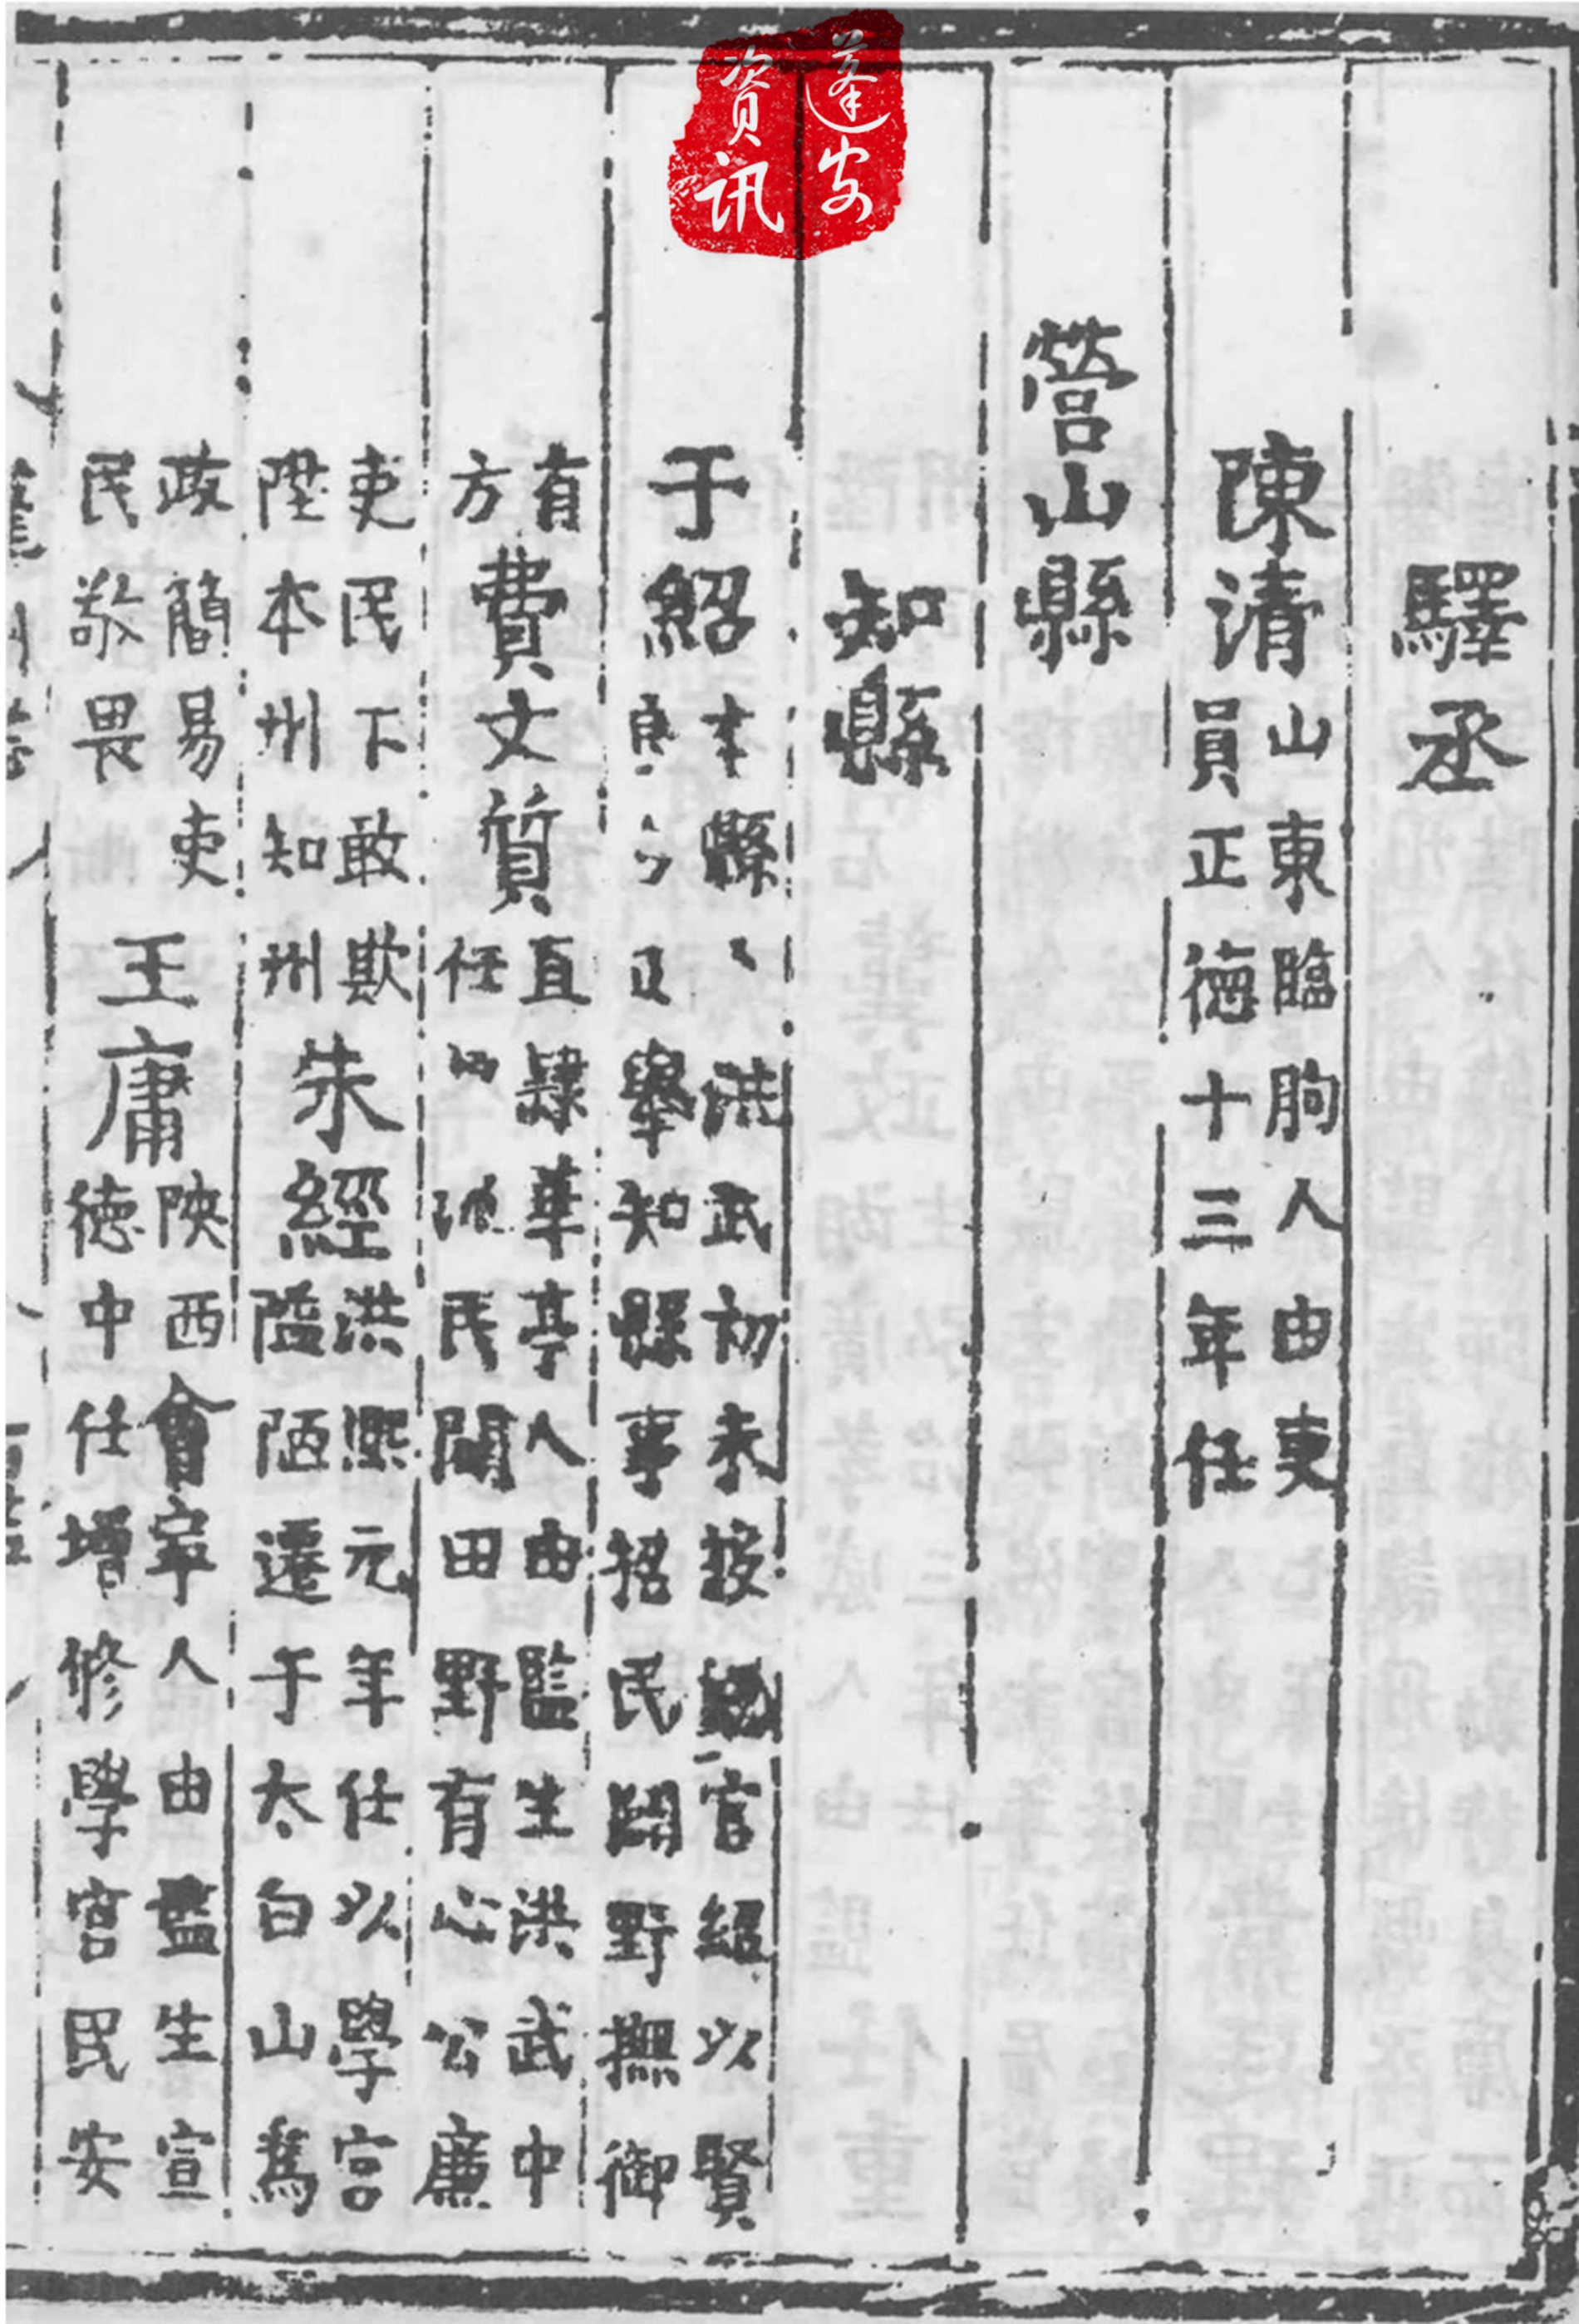 驛丞
陳清
山東臨朐人由吏
員正德十三年任
營山縣
知縣
于紹
本縣 洪武初未授 官紹以賢
良 舉知縣事招民闢野撫御
有
方
費文質
直隸華亭人由監生洪武中
任 民闢田野有心公廉
吏民下敢欺
陞本州知州
朱經
洪熙元年任以學宮
隘陋遷于太白山爲
政簡易吏
民敬畏
王庸
陜西會寧人由監生宣
德中任增修學宮民安
蓬安
资讯